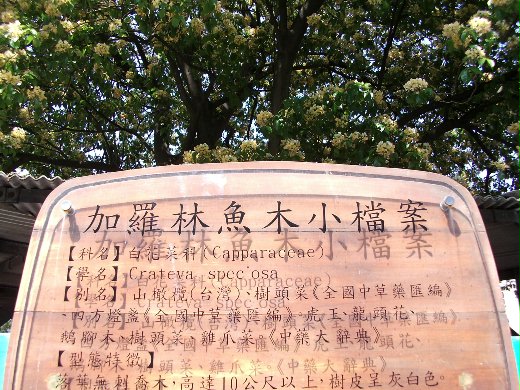 加羅林魚木小檔案
【科名】白花菜科(Capparaceae)
【學名】Crateva speciosa
【別名】山橄欖(台灣)、樹頭菜《全國中草藥匯編》
、四方燈盞《全國中草藥匯編》、虎王、龍頭花、
鵝腳木、樹頭菜、雞爪菜。《中藥大辭典》
【型態特徵】
落葉無刺喬木，高達10公尺以上，樹皮呈灰白色。